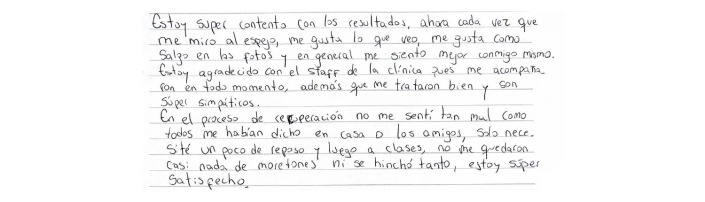 Estoy super contento con los resultados, ahora cada vez que
me miro al espejo, me gusta lo que veo, me gusta como
salgo en las fotos y en general me siento mejor conmigo mismo.
Estoy agradecido con el staff de la clínica pues me acompaña
ron en todo momento, además que me trataron bien y son
súper simpáticos.
En el proceso de recuperación no me sentí tan mal como
todos me habían dicho en casa o los amigos, solo nece-
sité un poco de reposo y luego a clases, no me quedaron
casi nada de moretones ni se hinchó tanto, estoy súper
satisfecho.